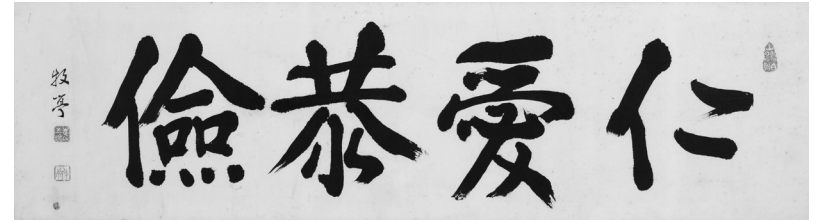 仁愛恭儉
牧亭